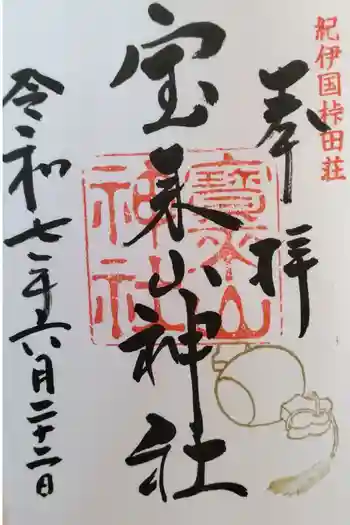 紀伊国桛田荘
奉拝
宝来山神社
寶來山神社
令和七年六月二十二日